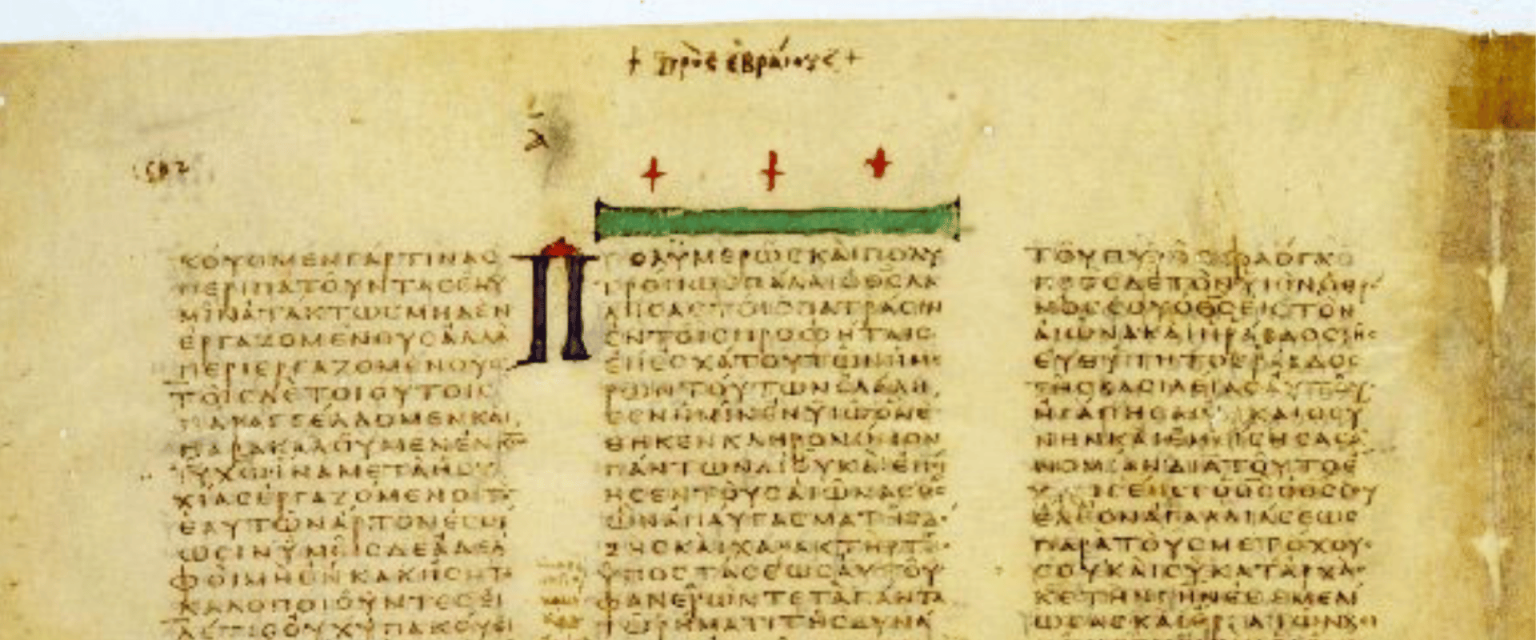 + πρὸς ἑβραίους +
ΚΟΥΟΜΕΝΓΑΡΤΙΝΑϹ
ΠΕΡΙΠΑΤΟΥΝΤΑϹΕΝΥ
ΜΙΝΑΤΑΚΤΩϹΜΗΔΕΝ
ΕΡΓΑΖΟΜΕΝΟΥϹΑΛΛΑ
ΠΕΡΙΕΡΓΑΖΟΜΕΝΟΥϹ
ΤΟΙϹΔΕΤΟΙΟΥΤΟΙϹ
ΠΑΡΑΓΓΕΛΛΟΜΕΝΚΑΙ
ΠΑΡΑΚΑΛΟΥΜΕΝΕΝΚΩ
ΙΥΧΩΙΝΑΜΕΤΑΗϹΥ
ΧΙΑϹΕΡΓΑΖΟΜΕΝΟΙΤΟ
ΕΑΥΤΩΝΑΡΤΟΝΕϹΘΙ
ΩϹΙΝΥΜΕΙϹΔΕΑΔΕΛ
ΦΟΙΜΗΕΝΚΑΚΗϹΗΤΕ
ΚΑΛΟΠΟΙΟΥΝΤΕϹΕΙ
ΔΕΤΙϹΟΥΧΥΠΑΚΟΥΕΙ
ΠΟΛΥΜΕΡΩϹΚΑΙΠΟΛΥ
ΤΡΟΠΩϹΠΑΛΑΙΟΘϹΛΑ
ΛΗϹΑϹΤΟΙϹΠΑΤΡΑϹΙΝ
ΕΝΤΟΙϹΠΡΟΦΗΤΑΙϹ
ΕΠΕϹΧΑΤΟΥΤΩΝΗΜΕ
ΡΩΝΤΟΥΤΩΝΕΛΑΛΗ
ϹΕΝΗΜΙΝΕΝΥΙΩΟΝΕ
ΘΗΚΕΝΚΛΗΡΟΝΟΜΟΝ
ΠΑΝΤΩΝΔΙΟΥΚΑΙΕΠΟΙ
ΗϹΕΝΤΟΥϹΑΙΩΝΑϹΟϹ
ΩΝΑΠΑΥΓΑϹΜΑΤΗϹΔΟ
ΞΗϹΚΑΙΧΑΡΑΚΤΗΡΤΗϹ
ΥΠΟϹΤΑϹΕΩϹΑΥΤΟΥ
ΦΑΝΕΡΩΝΤΕΤΑΠΑΝΤΑ
ΤΩΡΗΜΑΤΙΤΗϹΔΥΝΑ
ΤΟΥΠΥΡΟϹΦΛΟΓΑ
ΠΡΟϹΔΕΤΟΝΥΙΟΝΟΘΡΟ
ΝΟϹϹΟΥΟΘϹΕΙϹΤΟΝ
ΑΙΩΝΑΚΑΙΗΡΑΒΔΟϹΤΗϹ
ΕΥΘΥΤΗΤΟϹΡΑΒΔΟϹ
ΤΗϹΒΑϹΙΛΕΙΑϹΑΥΤΟΥ
ΗΓΑΠΗϹΑϹΔΙΚΑΙΟϹΥ
ΝΗΝΚΑΙΕΜΙϹΗϹΑϹΑ
ΝΟΜΙΑΝΔΙΑΤΟΥΤΟΕ
ΧΡΙϹΕΝϹΕΟΘϹΟΘϹϹΟΥ
ΕΛΕΟΝΑΓΑΛΛΙΑϹΕΩϹ
ΠΑΡΑΤΟΥϹΜΕΤΟΧΟΥϹ
ϹΟΥΚΑΙϹΥΚΑΤΑΡΧΑϹ
ΚΕΤΗΝΓΗΝΕΘΕΜΕΛΙ
ΩϹΑϹΚΑΙΕΡΓΑΤΩΝ